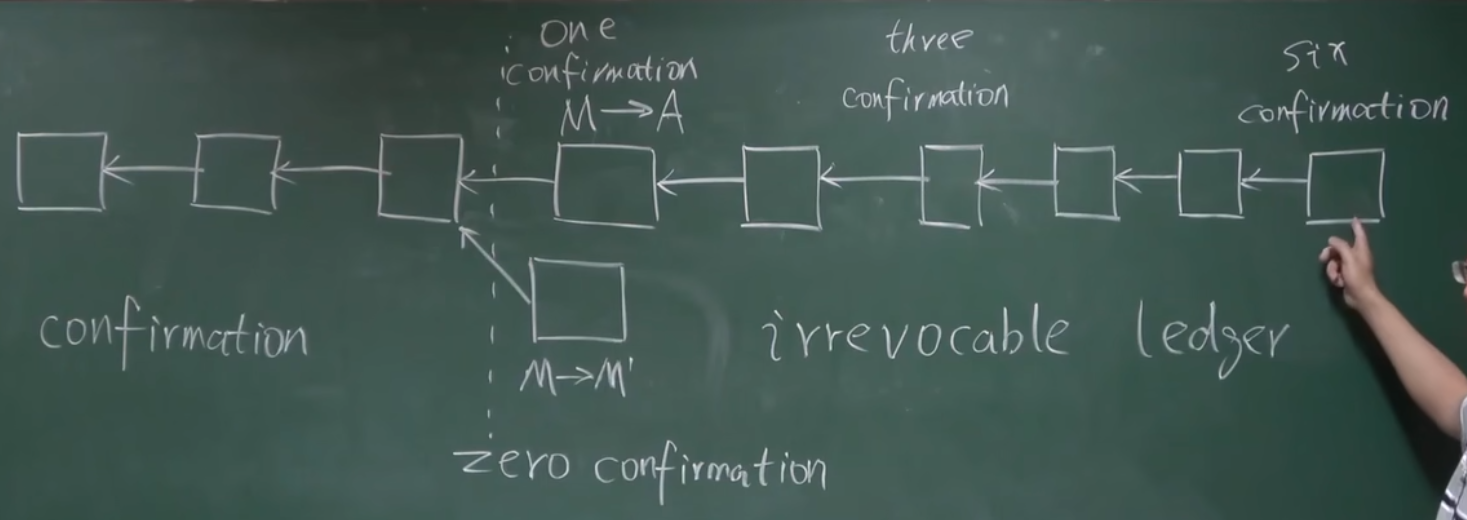 one
confirmation
M→A
three
confirmation
six
confirmation
confirmation
M→M'
irrevocable ledger
zero confirmation